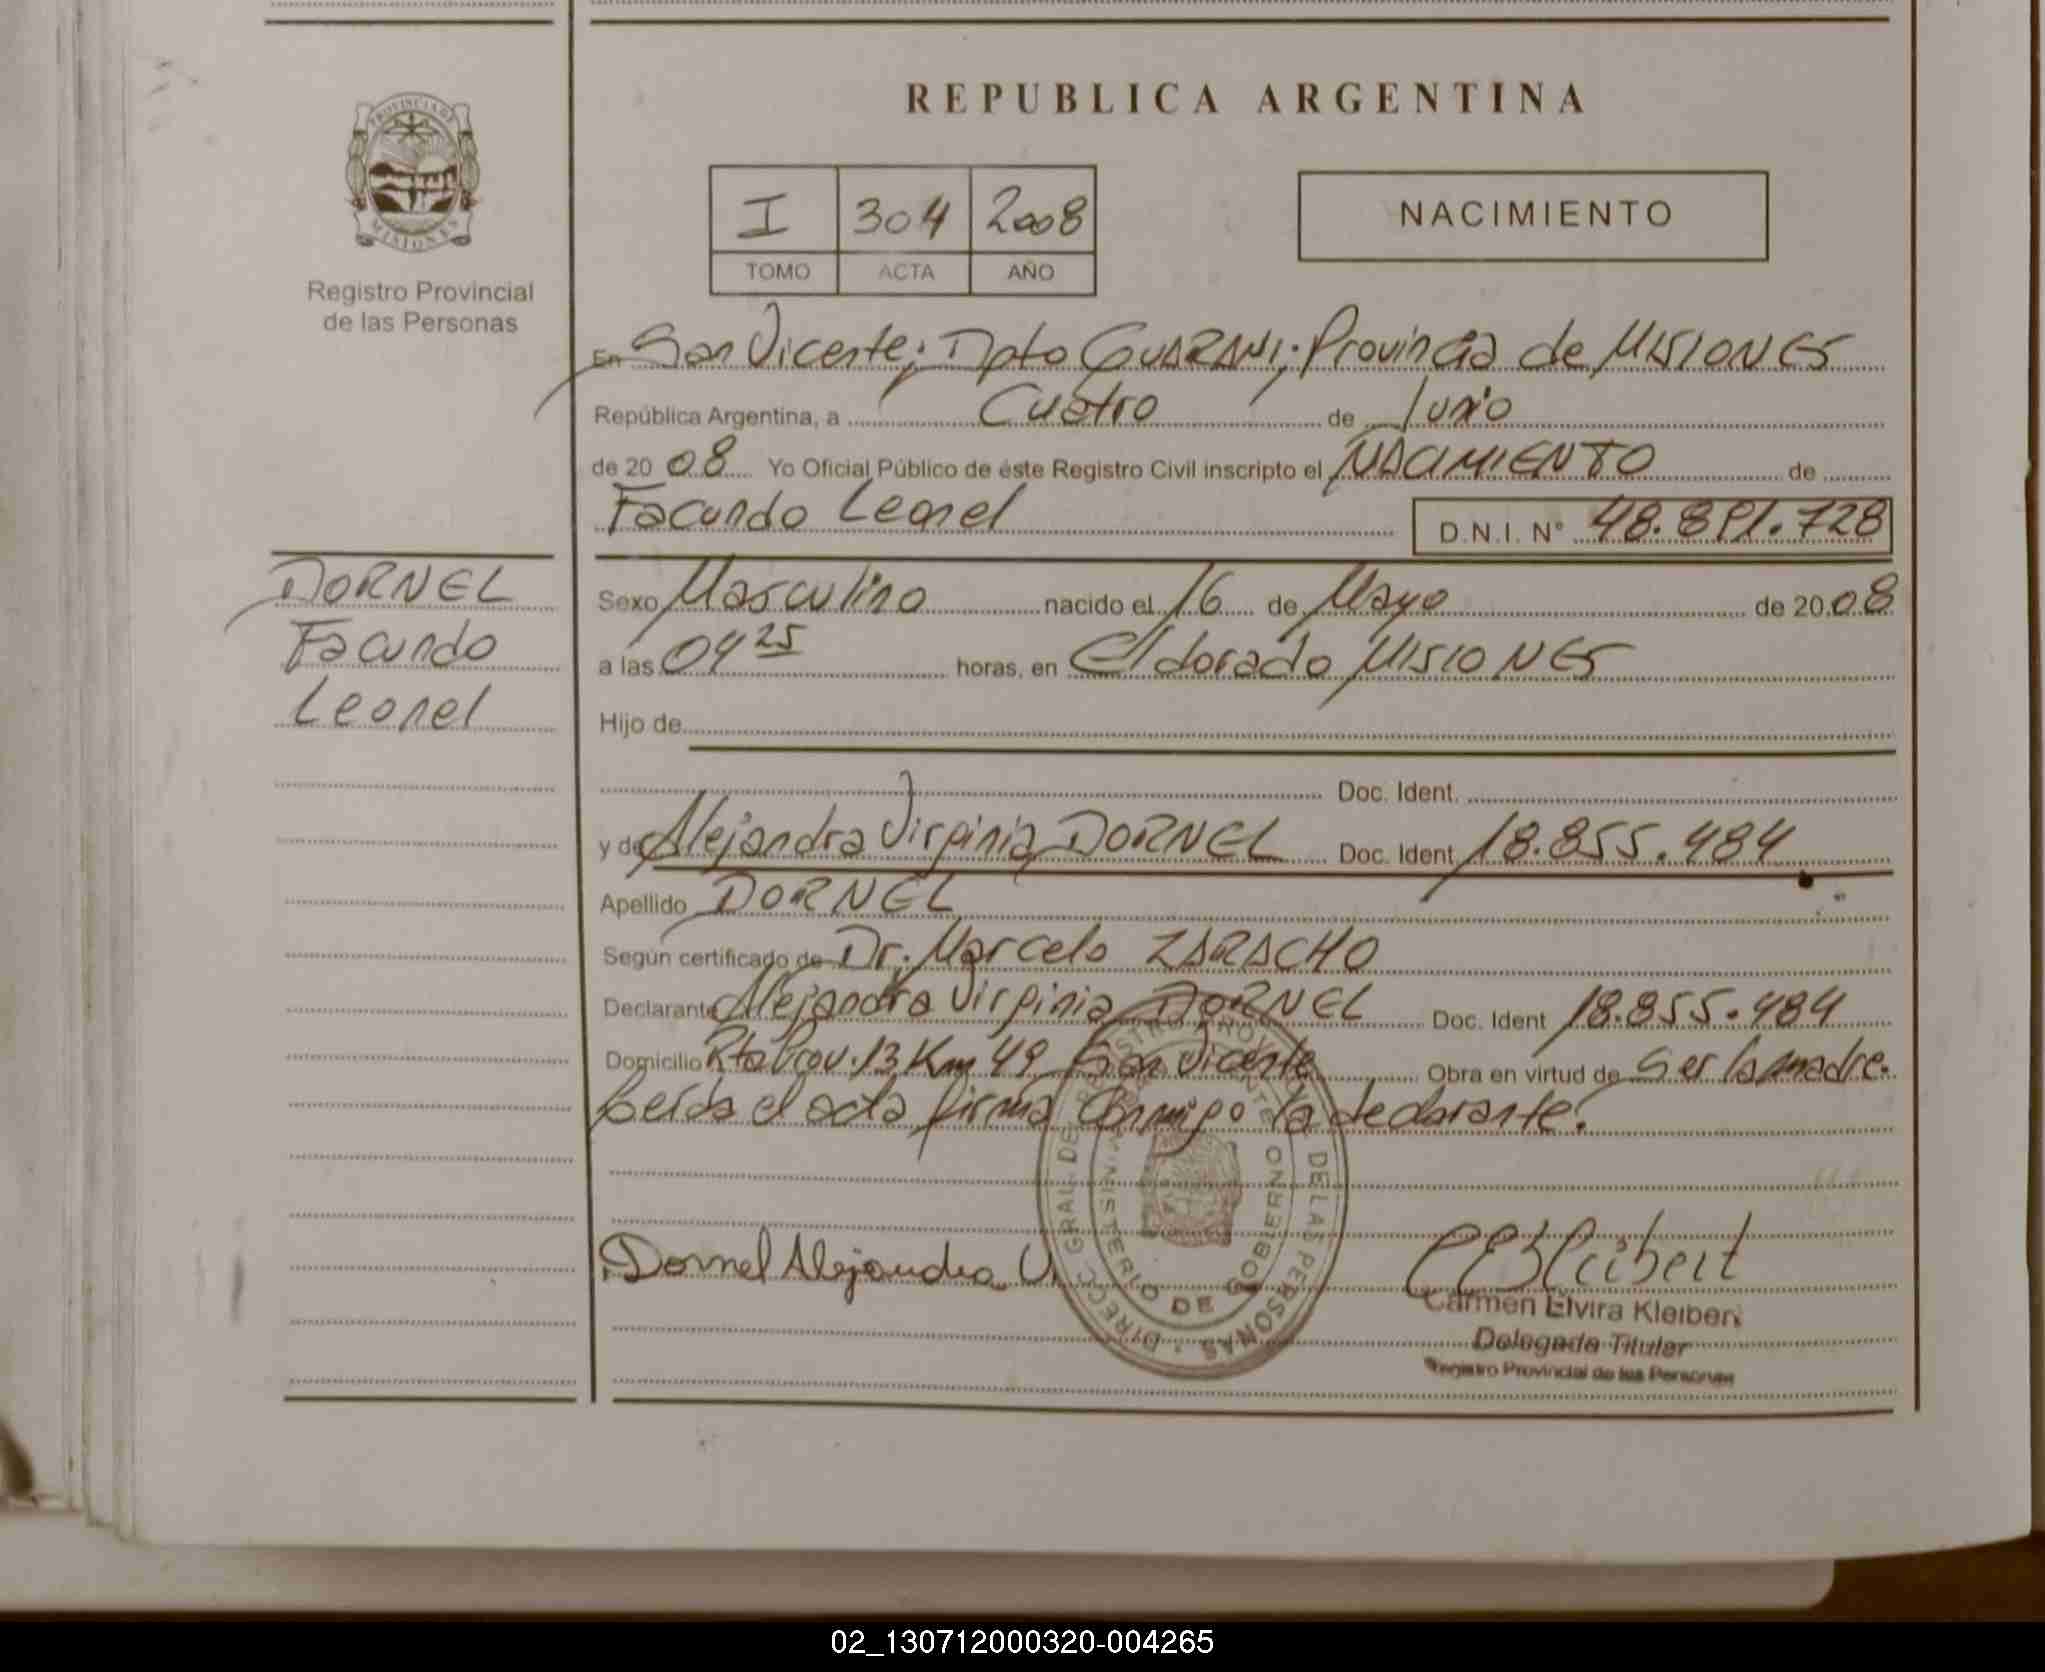 REPUBLICA ARGENTINA
PROVINCIA DE MISIONES
Registro Provincial
de las Personas
I 304 2008
TOMO ACTA AÑO
NACIMIENTO
En San Vicente; Dpto GUARANI; Provincia de MISIONES
República Argentina, a Cuatro de Junio
de 2008 Yo Oficial Público de éste Registro Civil inscripto el NACIMIENTO de
Facundo Leonel D.N.I. Nº 48.891.728
DORNEL
Facundo
Leonel
Sexo Masculino nacido el 16 de Mayo de 2008
a las 04 25 horas, en Eldorado MISIONES
Hijo de
Doc. Ident.
y de Alejandra Virginia DORNEL Doc. Ident 18.855.484
Apellido DORNEL
Según certificado de Dr. Marcelo ZARACHO
Declarante Alejandra Virginia DORNEL Doc. Ident 18.855.484
Domicilio Rta Prov. 13 Km 49 San Vicente Obra en virtud de Ser la madre.
Leída el acta firma Conmigo la declarante.
Dornel Alejandra V.
DIRECC. GRAL. DE DE LAS PERSONAS
MINISTERIO DE GOBIERNO
Carmen Elvira Kleibert
Delegada Titular
Registro Provincial de las Personas
02_130712000320-004265